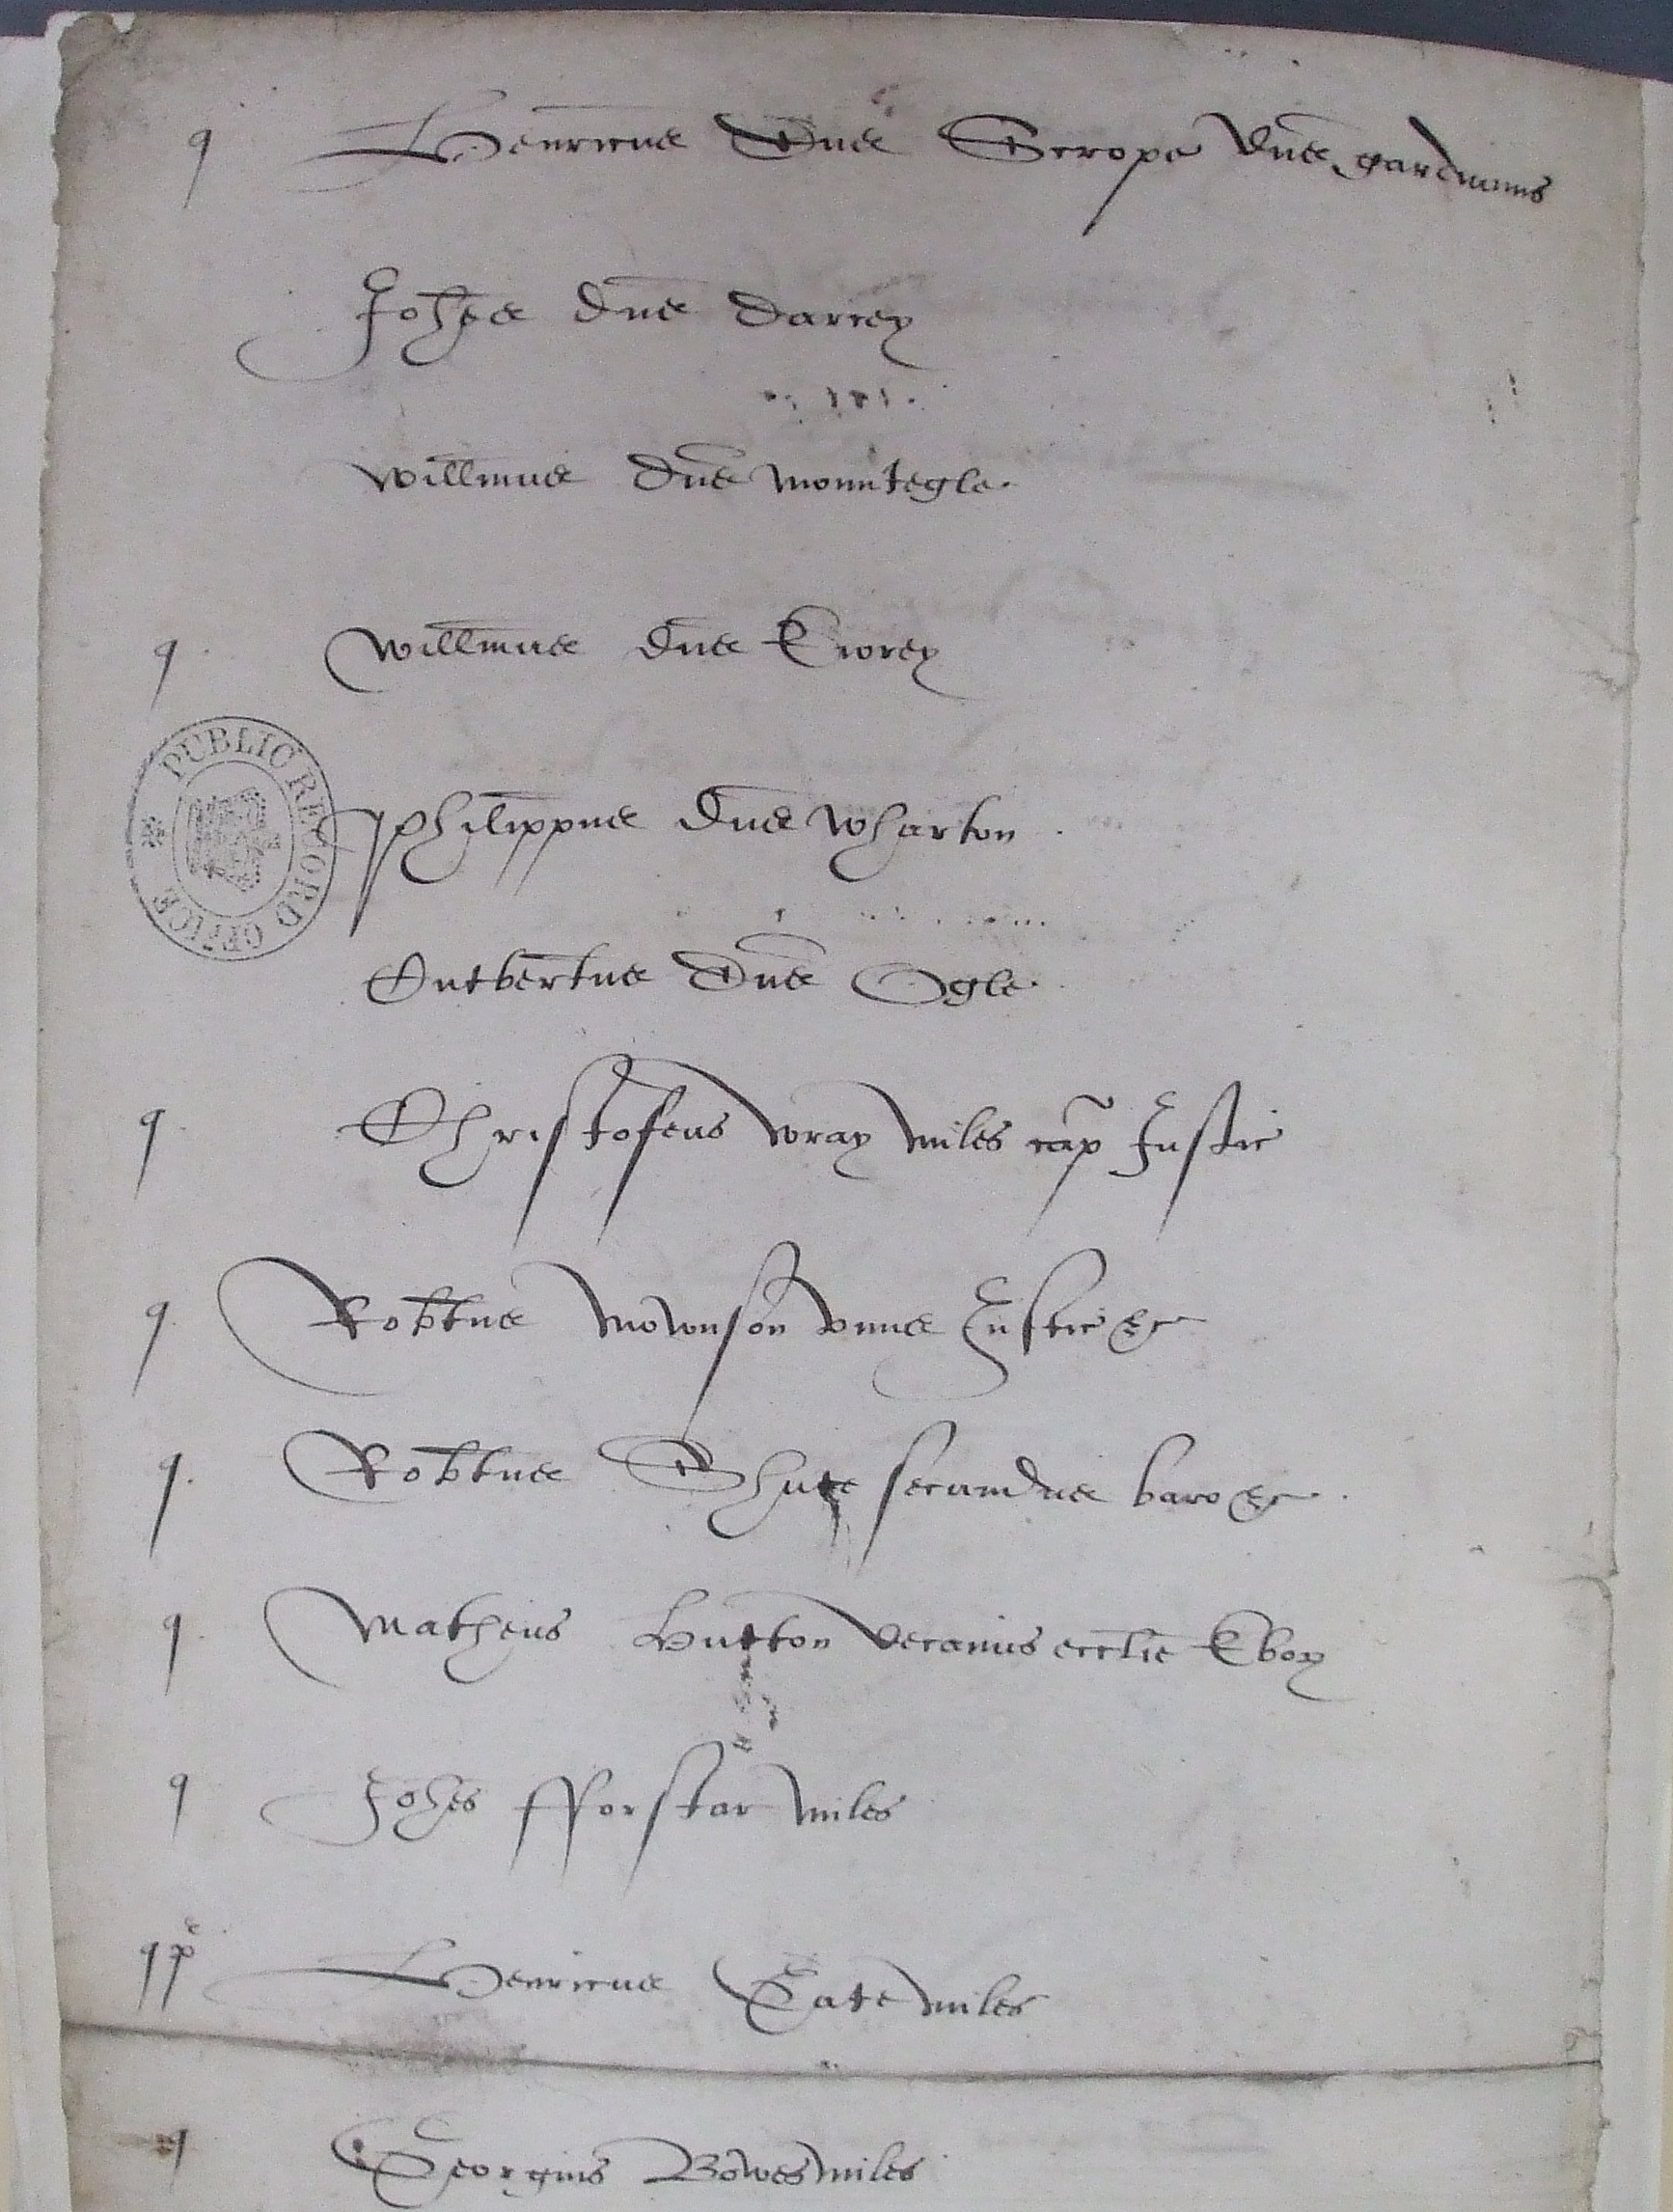 q Henricus Dns Scrope Dns gardianus
Johes Dns Darcey
Willmus Dns Mountegle
q Willmus Dns Ewrey
PUBLIC RECORD OFFICE
Philippus Dns Wharton
Cutbertus Dns Ogle
q Christoferus Wray miles cap Justic
q Robtus Mownson unus Justic &c
q Robtus Shute secundus baro &c
q Matheus Hutton decanus ecclie Ebor
q Johes Fforstar miles
q p Henricus Gate miles
q Georgius Bowes miles